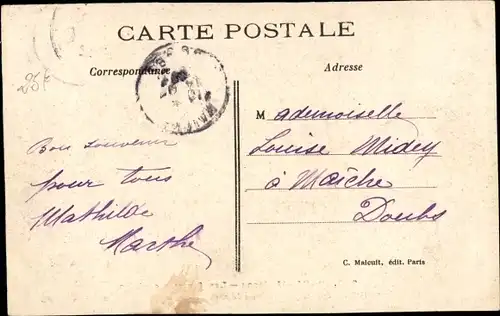 CARTE POSTALE
Correspondance
Adresse
25f
Mademoiselle
Louise Midey
à Maîche
Doubs
Bon souvenir
pour tous
Mathilde
Marthe
C. Malcuit, édit. Paris